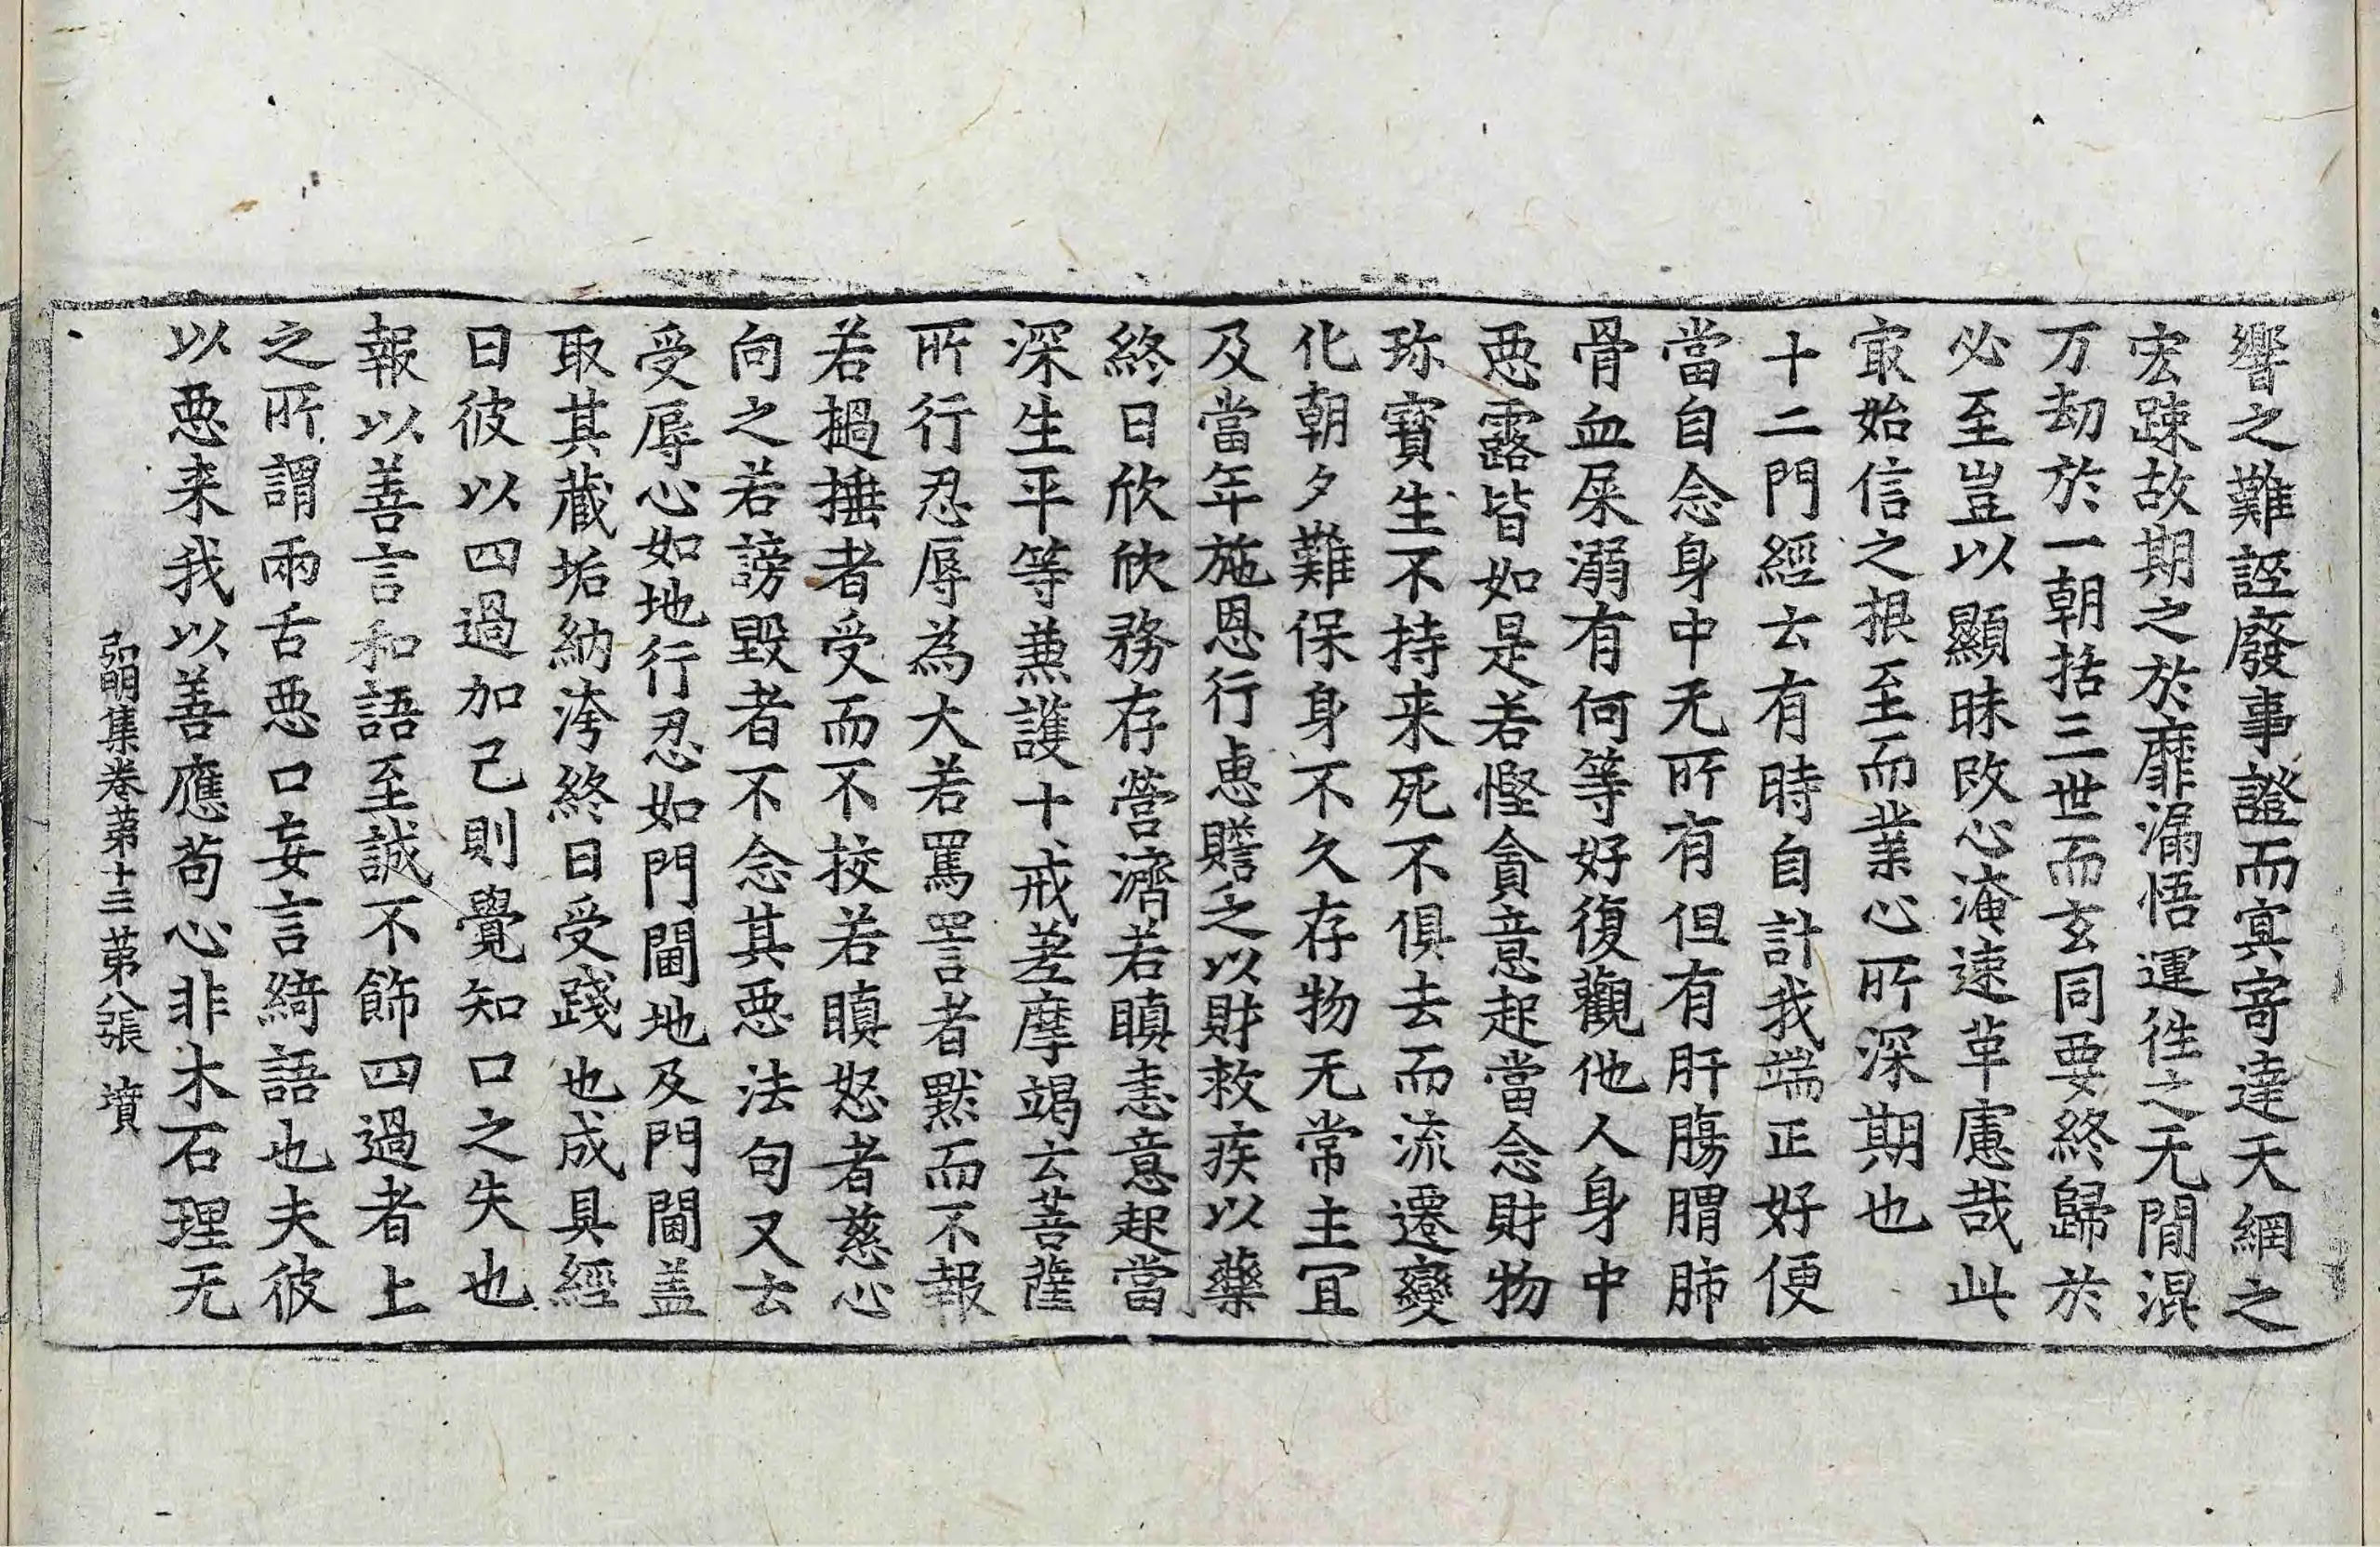 響之難誣廢事證而冥寄達天網之
宏踈故期之於靡漏悟運徃之无間混
万劫於一朝括三世而玄同要終歸於
必至豈以顯昧改心淹速革慮哉此
㝡始信之根至而業心所深期也
十二門經云有時自計我端正好便
當自念身中无所有但有肝腸腊肺
骨血屎溺有何等好復觀他人身中
惡露皆如是若慳貪意起當念財物
珎寶生不持来死不俱去而流遷變
化朝夕難保身不久存物无常主冝
及當年施恩行惠贍乏以財救疾以藥
終日欣欣務存營濟若瞋恚意起當
深生平等兼護十戒差摩竭云菩薩
所行忍辱為大若罵詈者默而不報
若撾捶者受而不挍若瞋怒者慈心
向之若謗毀者不念其惡法句又云
受辱心如地行忍如門閫地及門閫盖
取其藏垢納洿終日受踐也成具經
曰彼以四過加己則覺知口之失也
報以善言和語至誠不飾四過者上
之所謂兩舌惡口妄言綺語也夫彼
以惡来我以善應苟心非木石理无
弘明集卷苐十三 苐八張 墳